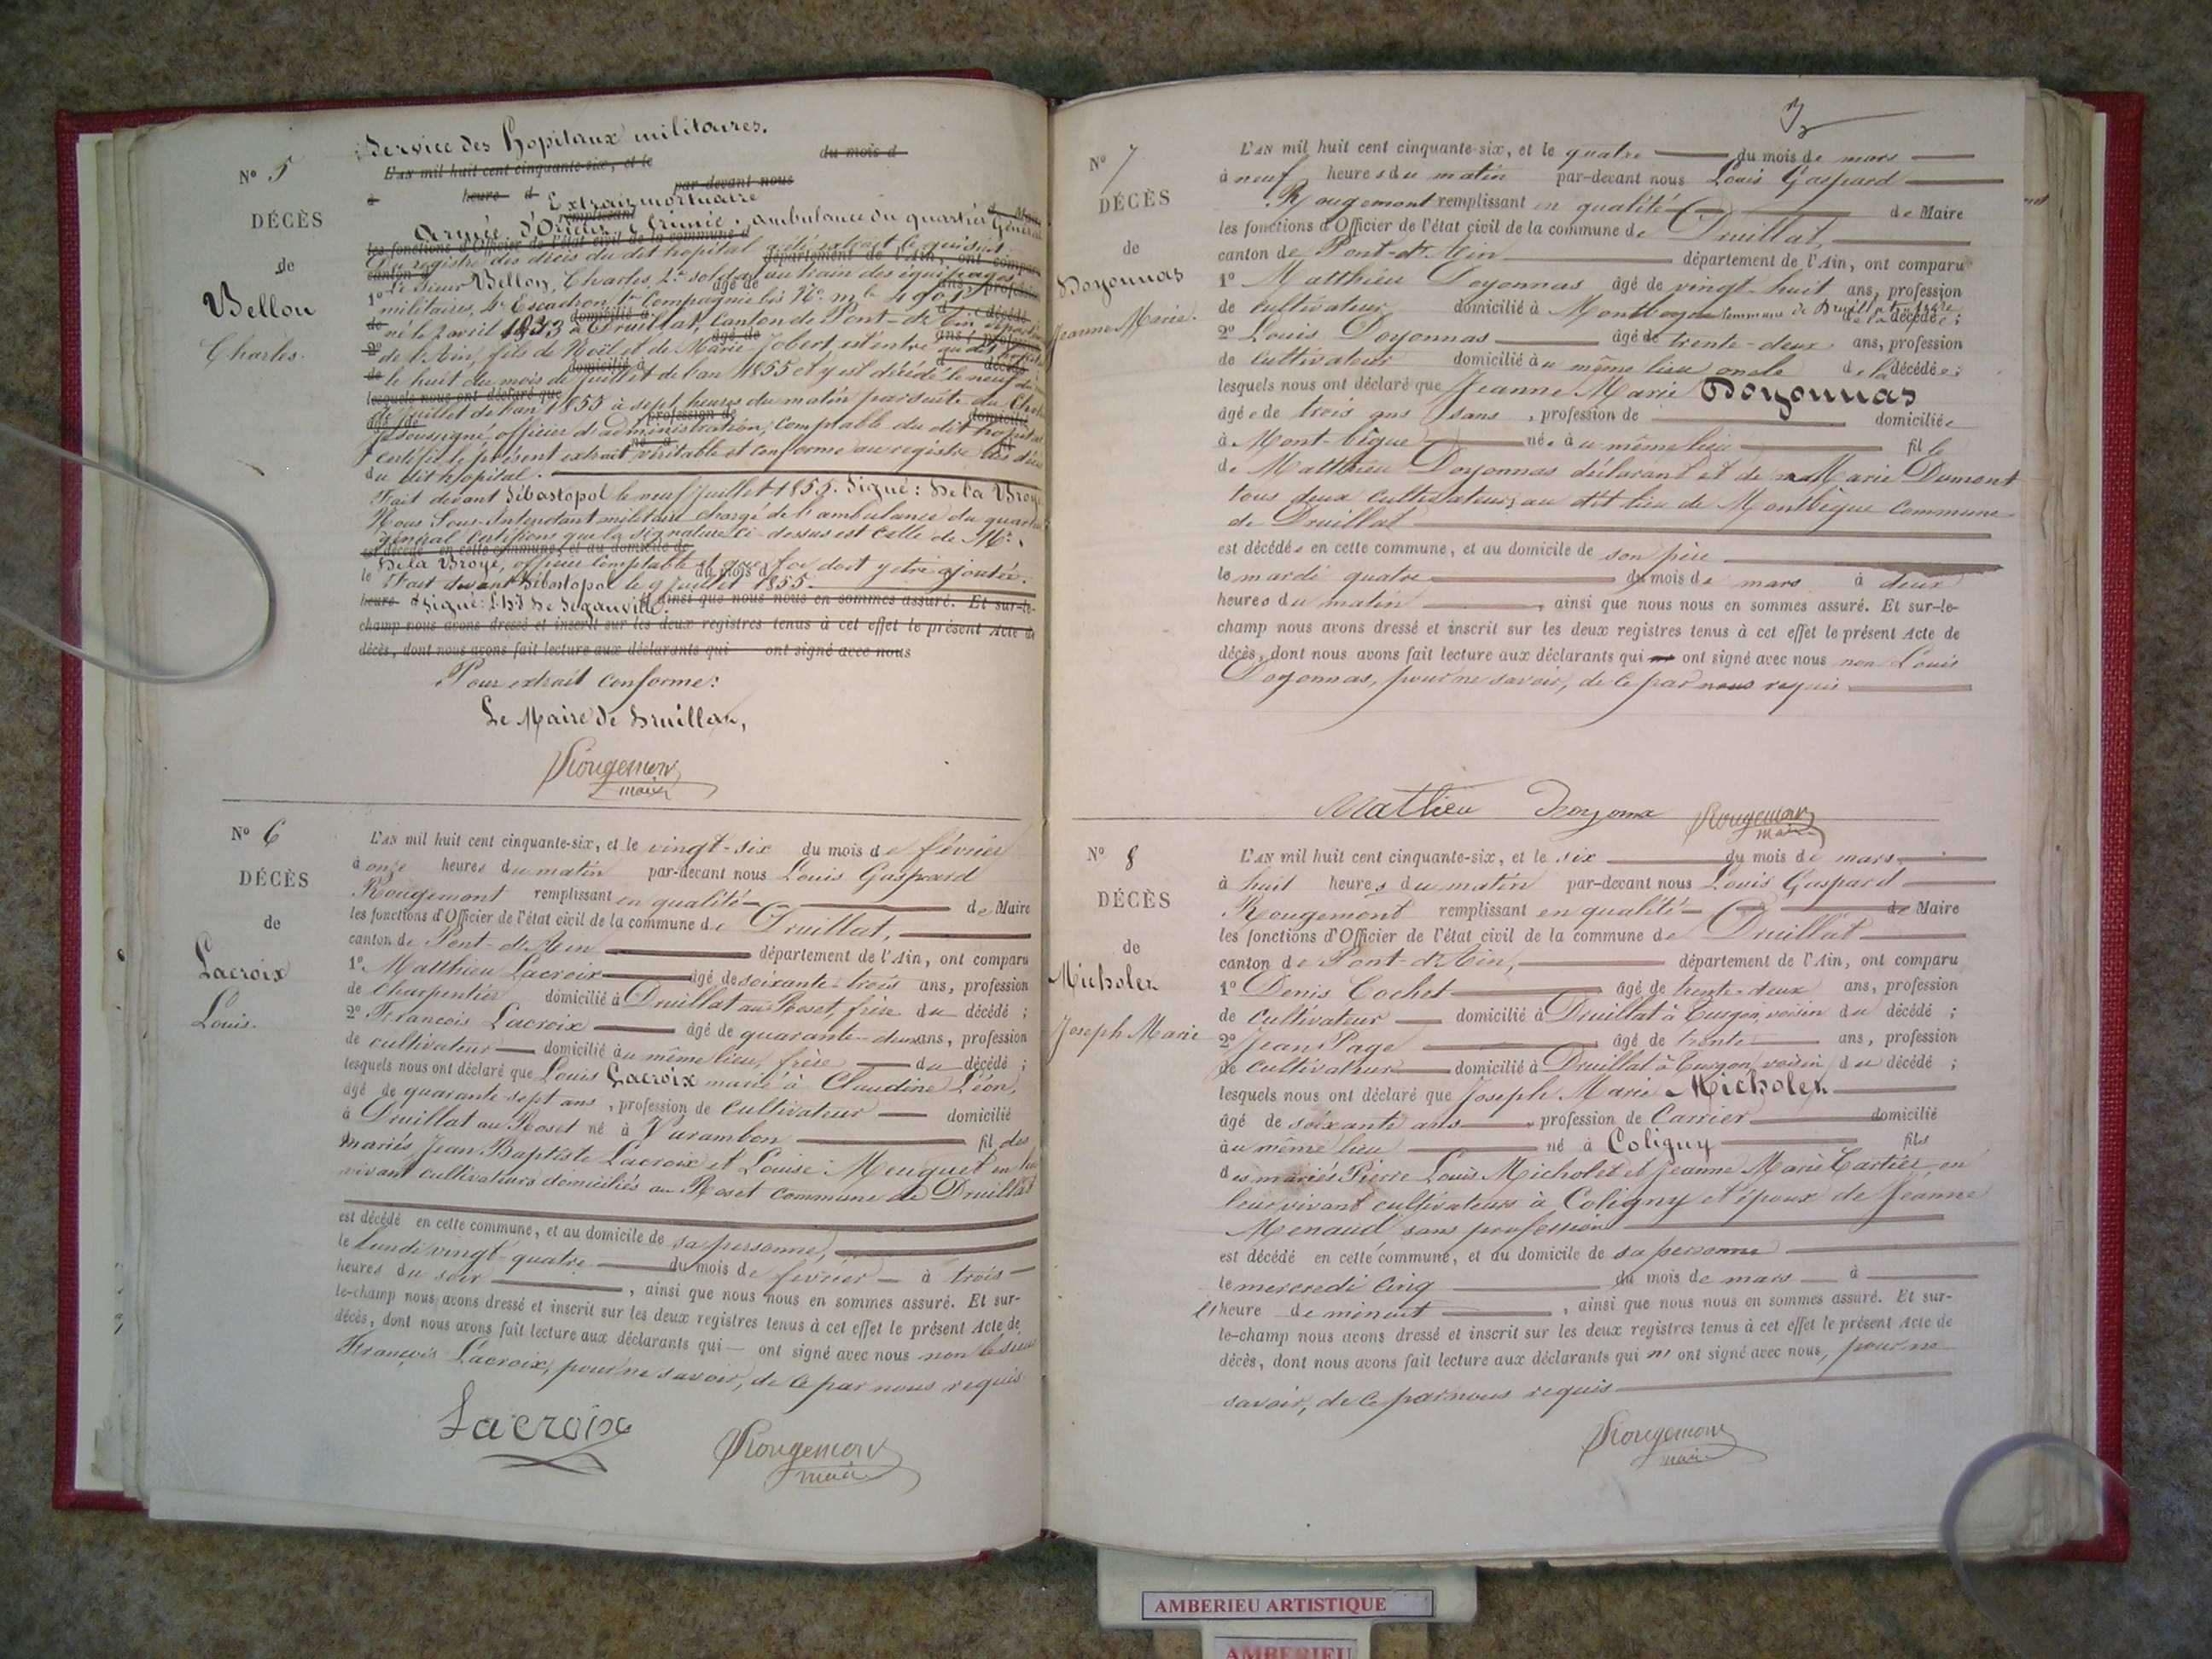 Service des Hopitaux militaires.
L'AN mil huit cent cinquante-six, et le du mois d
Nº 5
à heure d par-devant nous
Extrait mortuaire
remplissant
DÉCÈS
Armée d'Orient, Crimée, ambulance du quartier Général
les fonctions d'Officier de l'état civil de la commune d
Du registre des décès du dit hopital a été extrait le qui suit
canton d département de l'Ain, ont comparu
de
1º Le Sieur Vellon, Charles, 2e soldat au train des équipages
âgé de ans, profession
Vellon
militaires, Escadron, Compagnie bis Nº mle 4901
de domicilié à d décédé
né le avril 1833 à Druillat, Canton de Pont-d'Ain
Charles.
2º âgé de ans, profession
de l'Ain, fils de Noël et de Marie Jobert est entré
de domicilié à décédé
le huit du mois de juillet de l'an 1855 et y est décédé le neuf du
lesquels nous ont déclaré que
de juillet de l'an 1855 à sept heures du matin par suite du
âgé de profession de domicilié
Je soussigné officier d'administration, Comptable du dit hopital
à né à fil
certifie le présent extrait véritable et conforme au registre des décès
du dit hopital.
Fait devant Sébastopol le neuf juillet 1855. Signé: De la Broye
Nous Sous-Intendant militaire chargé de l'ambulance du quartier
général certifions que la signature ci-dessus est celle de Mr.
est décédé en cette commune, et au domicile de
De la Broye, officier Comptable et que foi doit y être ajoutée.
le du mois d
Fait devant Sébastopol le 9 juillet 1855.
heure d Signé: ainsi que nous nous en sommes assuré. Et sur-le-
champ nous avons dressé et inscrit sur les deux registres tenus à cet effet le présent Acte de
décès, dont nous avons fait lecture aux déclarants qui ont signé avec nous
Pour extrait conforme:
Le Maire de Druillat,
Rougemont
maire
Nº 6
L'AN mil huit cent cinquante-six, et le vingt-six du mois de février
à onze heures du matin par-devant nous Louis Gaspard
DÉCÈS
Rougemont remplissant en qualité de Maire
les fonctions d'Officier de l'état civil de la commune de Druillat,
de
canton de Pont-d'Ain département de l'Ain, ont comparu
Lacroix
1º Matthieu Lacroix âgé de soixante-trois ans, profession
de Charpentier domicilié à Druillat au Roset, frère du décédé ;
Louis.
2º François Lacroix âgé de quarante-deux ans, profession
de cultivateur domicilié au même lieu, frère du décédé ;
lesquels nous ont déclaré que Louis Lacroix marié à Claudine Léon,
âgé de quarante sept ans, profession de Cultivateur domicilié
à Druillat au Roset né à Varambon fil des
mariés Jean Baptiste Lacroix et Louise Meuguet en leur
vivant cultivateurs domiciliés au Roset Commune de Druillat
est décédé en cette commune, et au domicile de sa personne,
le lundi vingt-quatre du mois de février à trois
heures du soir, ainsi que nous nous en sommes assuré. Et sur-
le-champ nous avons dressé et inscrit sur les deux registres tenus à cet effet le présent Acte de
décès, dont nous avons fait lecture aux déclarants qui ont signé avec nous non le sieur
François Lacroix, pour ne savoir, de ce par nous requis
Lacroix Rougemont
maire
3
Nº 7
L'AN mil huit cent cinquante-six, et le quatre du mois de mars
à neuf heures du matin par-devant nous Louis Gaspard
DÉCÈS
Rougemont remplissant en qualité de Maire
les fonctions d'Officier de l'état civil de la commune de Druillat,
de
canton de Pont-d'Ain département de l'Ain, ont comparu
Doyonnas
1º Matthieu Doyonnas âgé de vingt-huit ans, profession
de cultivateur domicilié à Montbègue Commune de Druillat de la décédée ;
Jeanne Marie.
2º Louis Doyonnas âgé de trente-deux ans, profession
de Cultivateur domicilié au même lieu oncle de la décédée ;
lesquels nous ont déclaré que Jeanne Marie Doyonnas
âgée de trois ans sans, profession de domiciliée
à Mont-bègue née au même lieu fille
de Matthieu Doyonnas déclarant et de Marie Dumont
tous deux cultivateurs au dit lieu de Montbègue Commune
de Druillat
est décédée en cette commune, et au domicile de son père
le mardi quatre du mois de mars à deux
heures du matin, ainsi que nous nous en sommes assuré. Et sur-le-
champ nous avons dressé et inscrit sur les deux registres tenus à cet effet le présent Acte de
décès, dont nous avons fait lecture aux déclarants qui ont signé avec nous non Louis
Doyonnas, pour ne savoir, de ce par nous requis
Mathieu Doyonna Rougemont
maire
Nº 8
L'AN mil huit cent cinquante-six, et le six du mois de mars
à huit heures du matin par-devant nous Louis Gaspard
DÉCÈS
Rougemont remplissant en qualité de Maire
les fonctions d'Officier de l'état civil de la commune de Druillat
de
canton de Pont-d'Ain, département de l'Ain, ont comparu
Micholet
1º Denis Cochet âgé de trente-deux ans, profession
de Cultivateur domicilié à Druillat à Turgon, voisin du décédé ;
Joseph Marie
2º Jean Page âgé de trente ans, profession
de Cultivateur domicilié à Druillat à Turgon, voisin du décédé ;
lesquels nous ont déclaré que Joseph Marie Micholet
âgé de soixante ans, profession de Carrier domicilié
au même lieu né à Coligny fils
des mariés Pierre Louis Micholet et Jeanne Marie Cartier, en
leur vivant cultivateurs à Coligny et époux de Jeanne
Menaud sans profession
est décédé en cette commune, et au domicile de sa personne
le mercredi cinq du mois de mars à
l'heure de minuit, ainsi que nous nous en sommes assuré. Et sur-
le-champ nous avons dressé et inscrit sur les deux registres tenus à cet effet le présent Acte de
décès, dont nous avons fait lecture aux déclarants qui n'ont signé avec nous, pour ne
savoir, de ce par nous requis
Rougemont
maire
AMBERIEU ARTISTIQUE
AMBERIEU